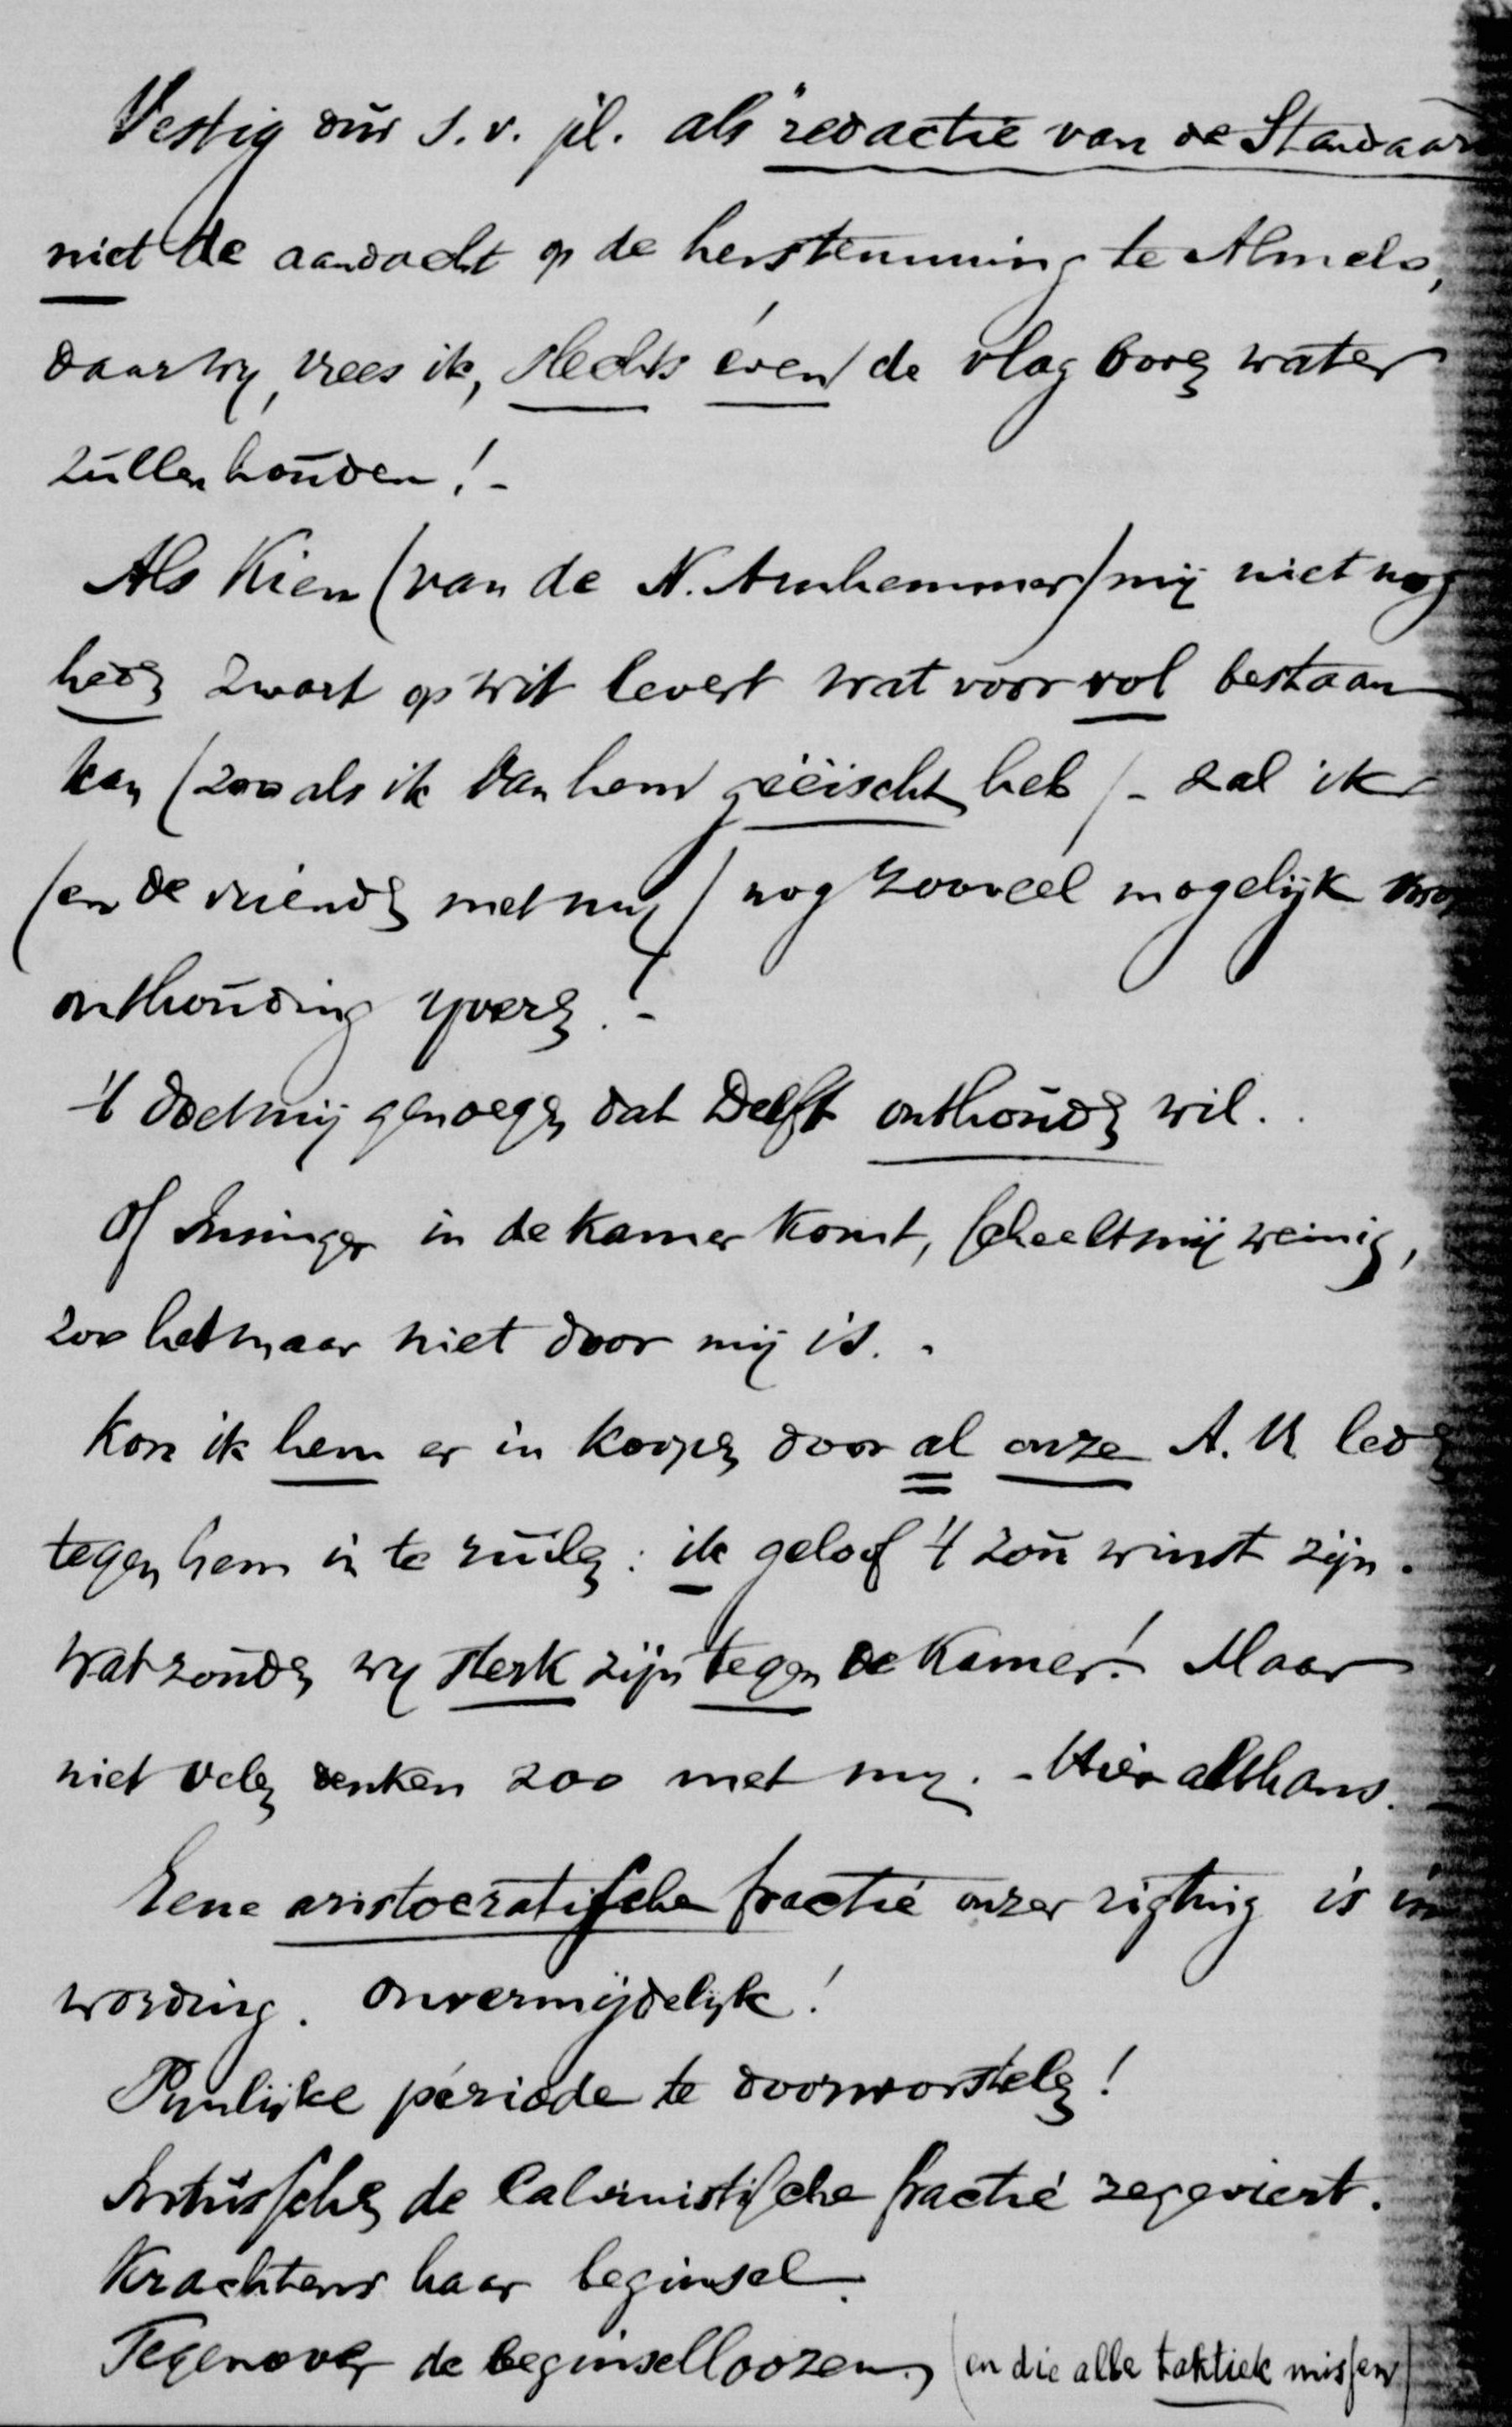 Vestig dus s.v.pl. als "redactie van de Standaard
niet de aandacht op de herstemming te Almelo,
daar wy, vrees ik, slechts even de vlag boven water
zullen houden! -
Als Kien (van de N. Arnhemmer) mij niet nog
heden zwart op wit levert wat voor vol bestaan
kan (zooals ik van hem geëischt heb) - zal ik
(en de vrienden met my) nog zooveel mogelijk voor
onthouding yveren. -
't Doet mij genoegen dat Delft onthouden wil.
Of Insinger in de Kamer komt, scheelt mij weinig,
zoo het maar niet door mij is. -
Kon ik hem er in koopen door al onze A.R. leden
tegen hem in te ruilen: ik geloof 't zou winst zijn.
Wat zouden wy sterk zijn tegen de Kamer! Maar
niet velen denken zoo met my. - Hier althans. -
Eene aristocratische fractie onzer rigting is in
wording. Onvermijdelyk!
Pynlijke periode te doorworstelen!
Intusschen de Calvinistische fractie zegeviert.
Krachtens haar beginsel.
Tegenover de beginselloozen, (en die alle taktiek missen)